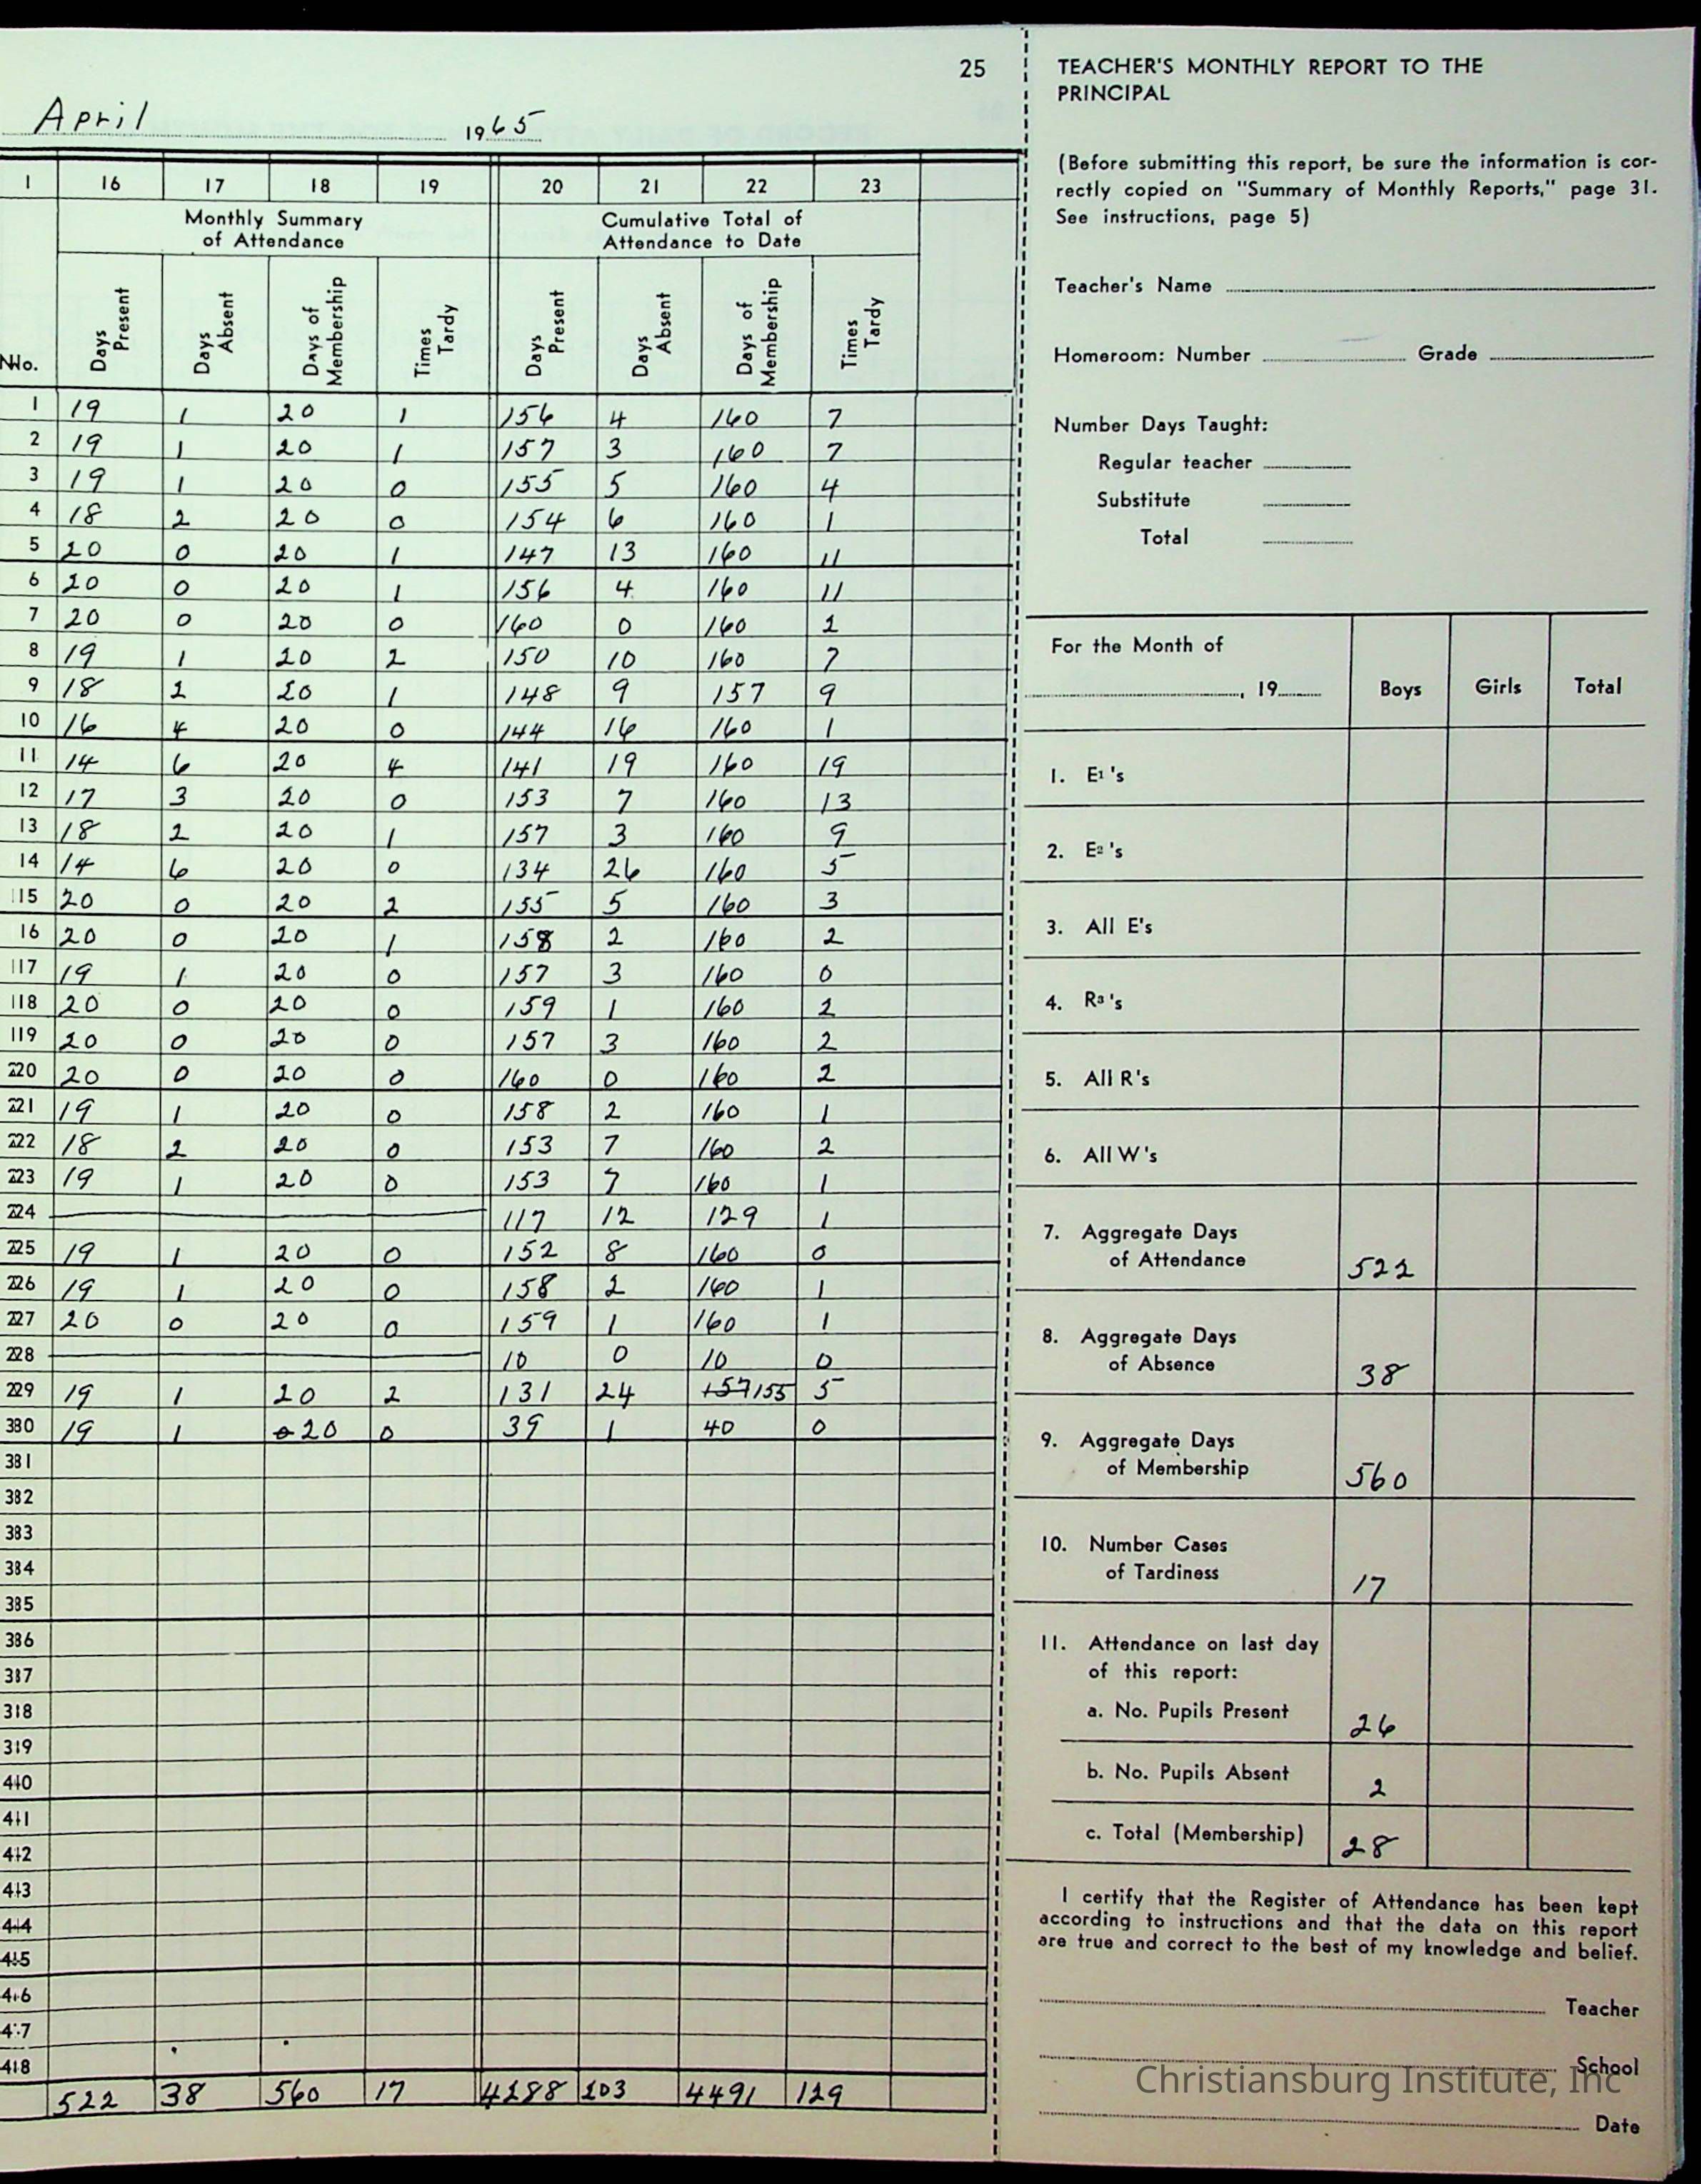 25
April 1965
1 16 17 18 19 20 21 22 23
Monthly Summary of Attendance Cumulative Total of Attendance to Date
No. Days Present Days Absent Days of Membership Times Tardy Days Present Days Absent Days of Membership Times Tardy
1 19 1 20 1 156 4 160 7
2 19 1 20 1 157 3 160 7
3 19 1 20 0 155 5 160 4
4 18 2 20 0 154 6 160 1
5 20 0 20 1 147 13 160 11
6 20 0 20 1 156 4 160 11
7 20 0 20 0 160 0 160 2
8 19 1 20 2 150 10 160 7
9 18 2 20 1 148 9 157 9
10 16 4 20 0 144 16 160 1
11 14 6 20 4 141 19 160 19
12 17 3 20 0 153 7 160 13
13 18 2 20 1 157 3 160 9
14 14 6 20 0 134 26 160 5
15 20 0 20 2 155 5 160 3
16 20 0 20 1 158 2 160 2
17 19 1 20 0 157 3 160 0
18 20 0 20 0 159 1 160 2
19 20 0 20 0 157 3 160 2
20 20 0 20 0 160 0 160 2
21 19 1 20 0 158 2 160 1
22 18 2 20 0 153 7 160 2
23 19 1 20 0 153 7 160 1
24 117 12 129 1
25 19 1 20 0 152 8 160 0
26 19 1 20 0 158 2 160 1
27 20 0 20 0 159 1 160 1
28 10 0 10 0
29 19 1 20 2 131 24 157 155 5
30 19 1 20 0 39 1 40 0
31
32
33
34
35
36
37
38
39
40
41
42
43
44
45
46
47
48
522 38 560 17 4288 203 4491 129
TEACHER'S MONTHLY REPORT TO THE
PRINCIPAL
(Before submitting this report, be sure the information is cor-
rectly copied on "Summary of Monthly Reports," page 31.
See instructions, page 5)
Teacher's Name
Homeroom: Number Grade
Number Days Taught:
Regular teacher
Substitute
Total
For the Month of
, 19 Boys Girls Total
1. E1's
2. E2's
3. All E's
4. R3's
5. All R's
6. All W's
7. Aggregate Days
of Attendance 522
8. Aggregate Days
of Absence 38
9. Aggregate Days
of Membership 560
10. Number Cases
of Tardiness 17
11. Attendance on last day
of this report:
a. No. Pupils Present 26
b. No. Pupils Absent 2
c. Total (Membership) 28
I certify that the Register of Attendance has been kept
according to instructions and that the data on this report
are true and correct to the best of my knowledge and belief.
Teacher
School
Christiansburg Institute, Inc
Date